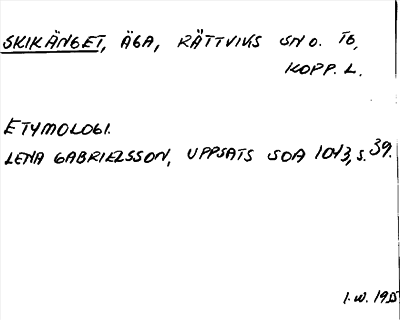 SKIKÄNGET, ÄGA, RÄTTVIKS SN O. TG,
KOPP. L.
ETYMOLOGI.
LENA GABRIELSSON, UPPSATS SOA 1043, S. 39.
I.W. 19